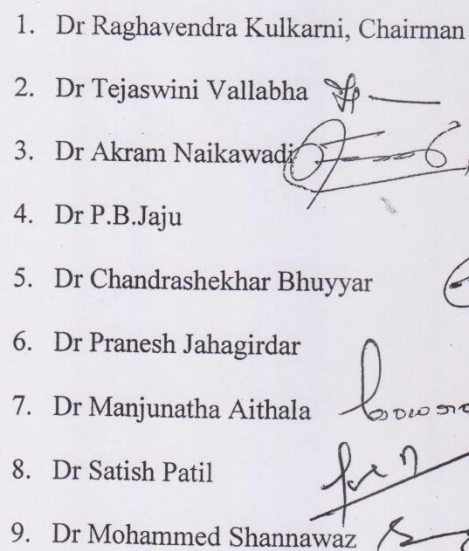 1. Dr Raghavendra Kulkarni, Chairman
2. Dr Tejaswini Vallabha
3. Dr Akram Naikawadi
4. Dr P.B.Jaju
5. Dr Chandrashekhar Bhuyyar
6. Dr Pranesh Jahagirdar
7. Dr Manjunatha Aithala
8. Dr Satish Patil
9. Dr Mohammed Shannawaz